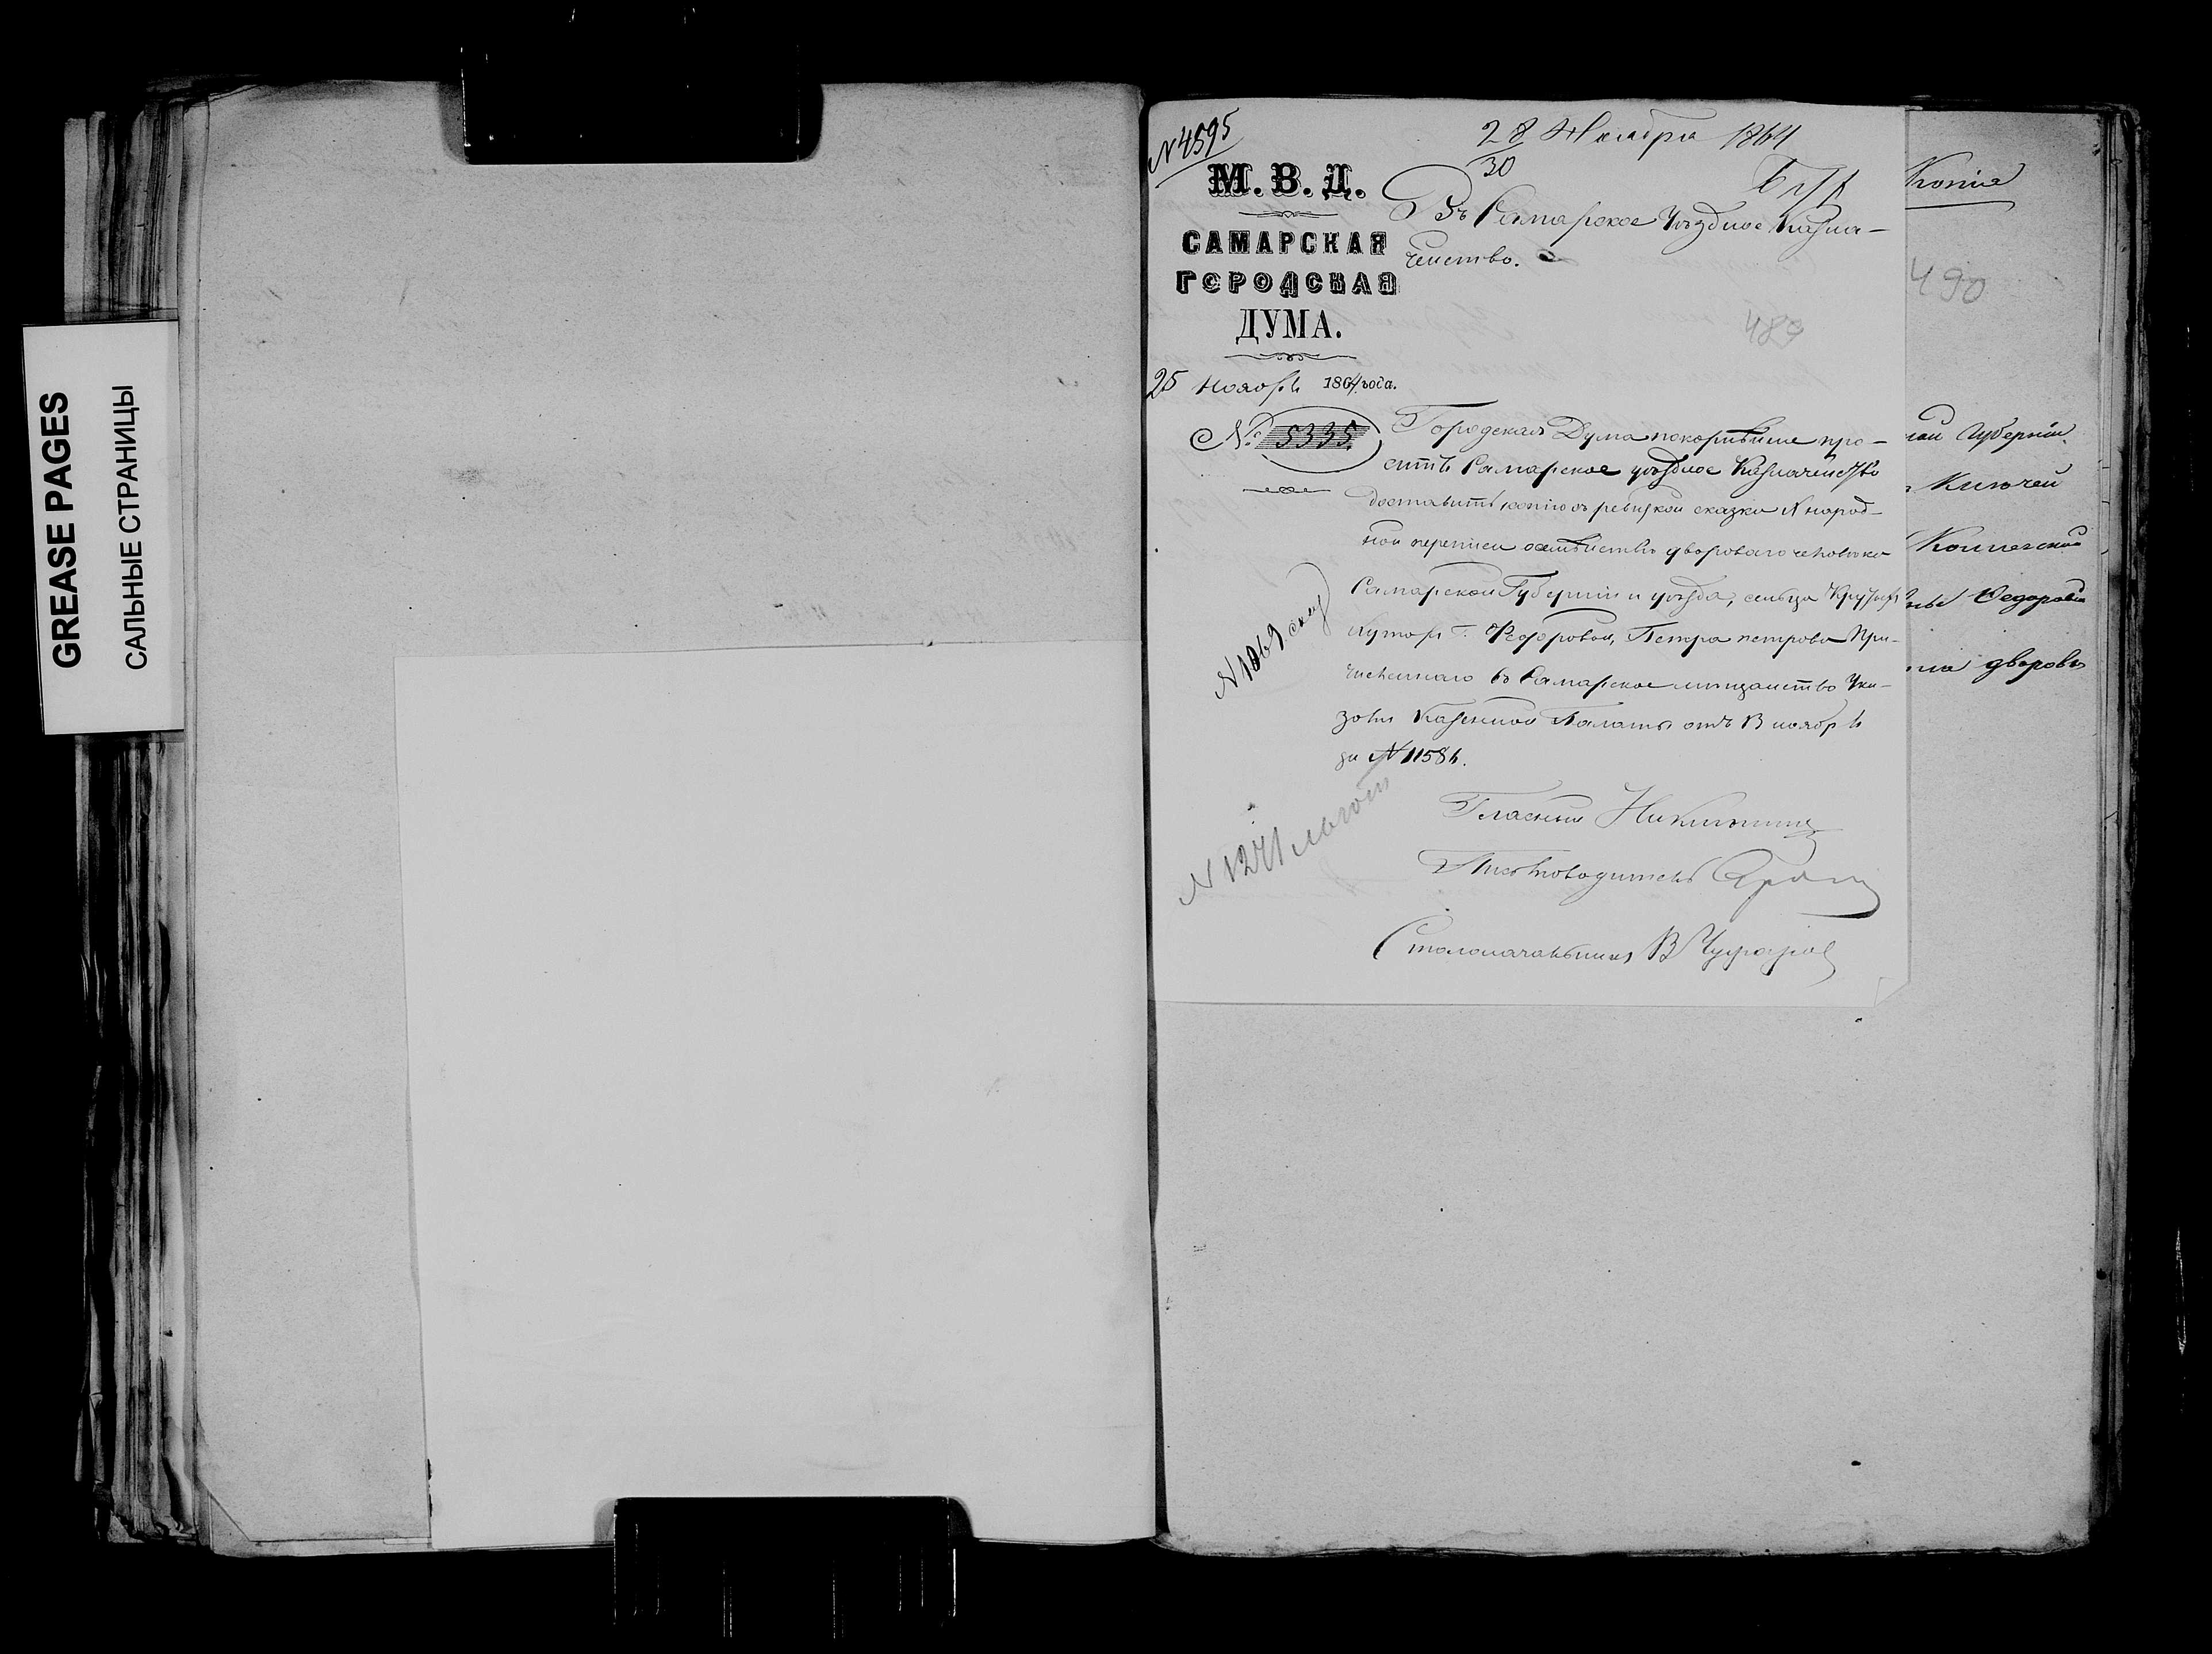 GREASE PAGES
САЛЬНЫЕ СТРАНИЦЫ
N 4595
28 Ноября 1864
30
М. В. Д.
САМАРСКАЯ
ГОРОДСКАЯ
ДУМА.
25 ноября 1864 года.
№ 5335
Въ Самарское Уѣздное Казна-
чейство.
489
Городская Дума покорнѣйше про-
ситъ Самарское уѣздное Казначейство
доставить копію съ ревизкой сказки X народ-
ной переписи о семѣйствѣ двороваго человѣка
Самарской Губерніи и уѣзда, сельца
хутора Г. Федоровой, Петра петрова При-
численнаго въ Самарское мѣщанство Ука-
зомъ Казенной Палаты отъ 13 ноября
за N 11584.
N 1069
N 1271
Гласный Никитинъ
Письмоводитель
Столоначальникъ В
Копія
490
ной Губерніи
Ключей
Колежской
Федоровой
дворовы